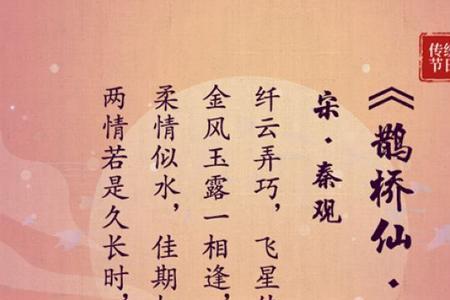 传统
节日
《鹊桥仙·
宋·秦观
纤云弄巧，飞星
金风玉露一相逢，
柔情似水，佳期
两情若是久长时，